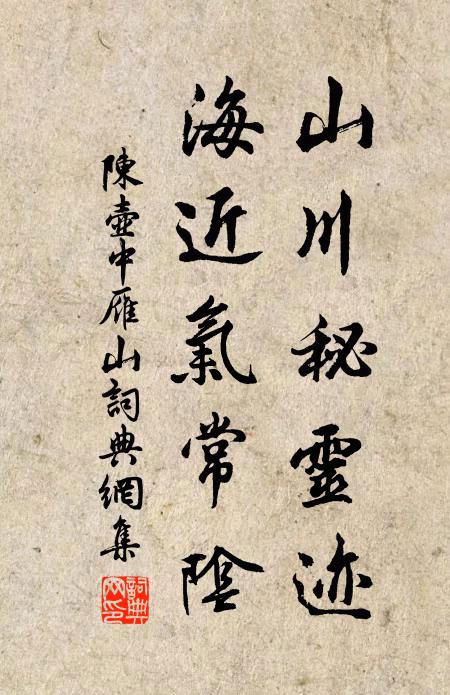 山川秘靈迹
海近氣常陰
陳壺中雁山詞典網集
詞典網印